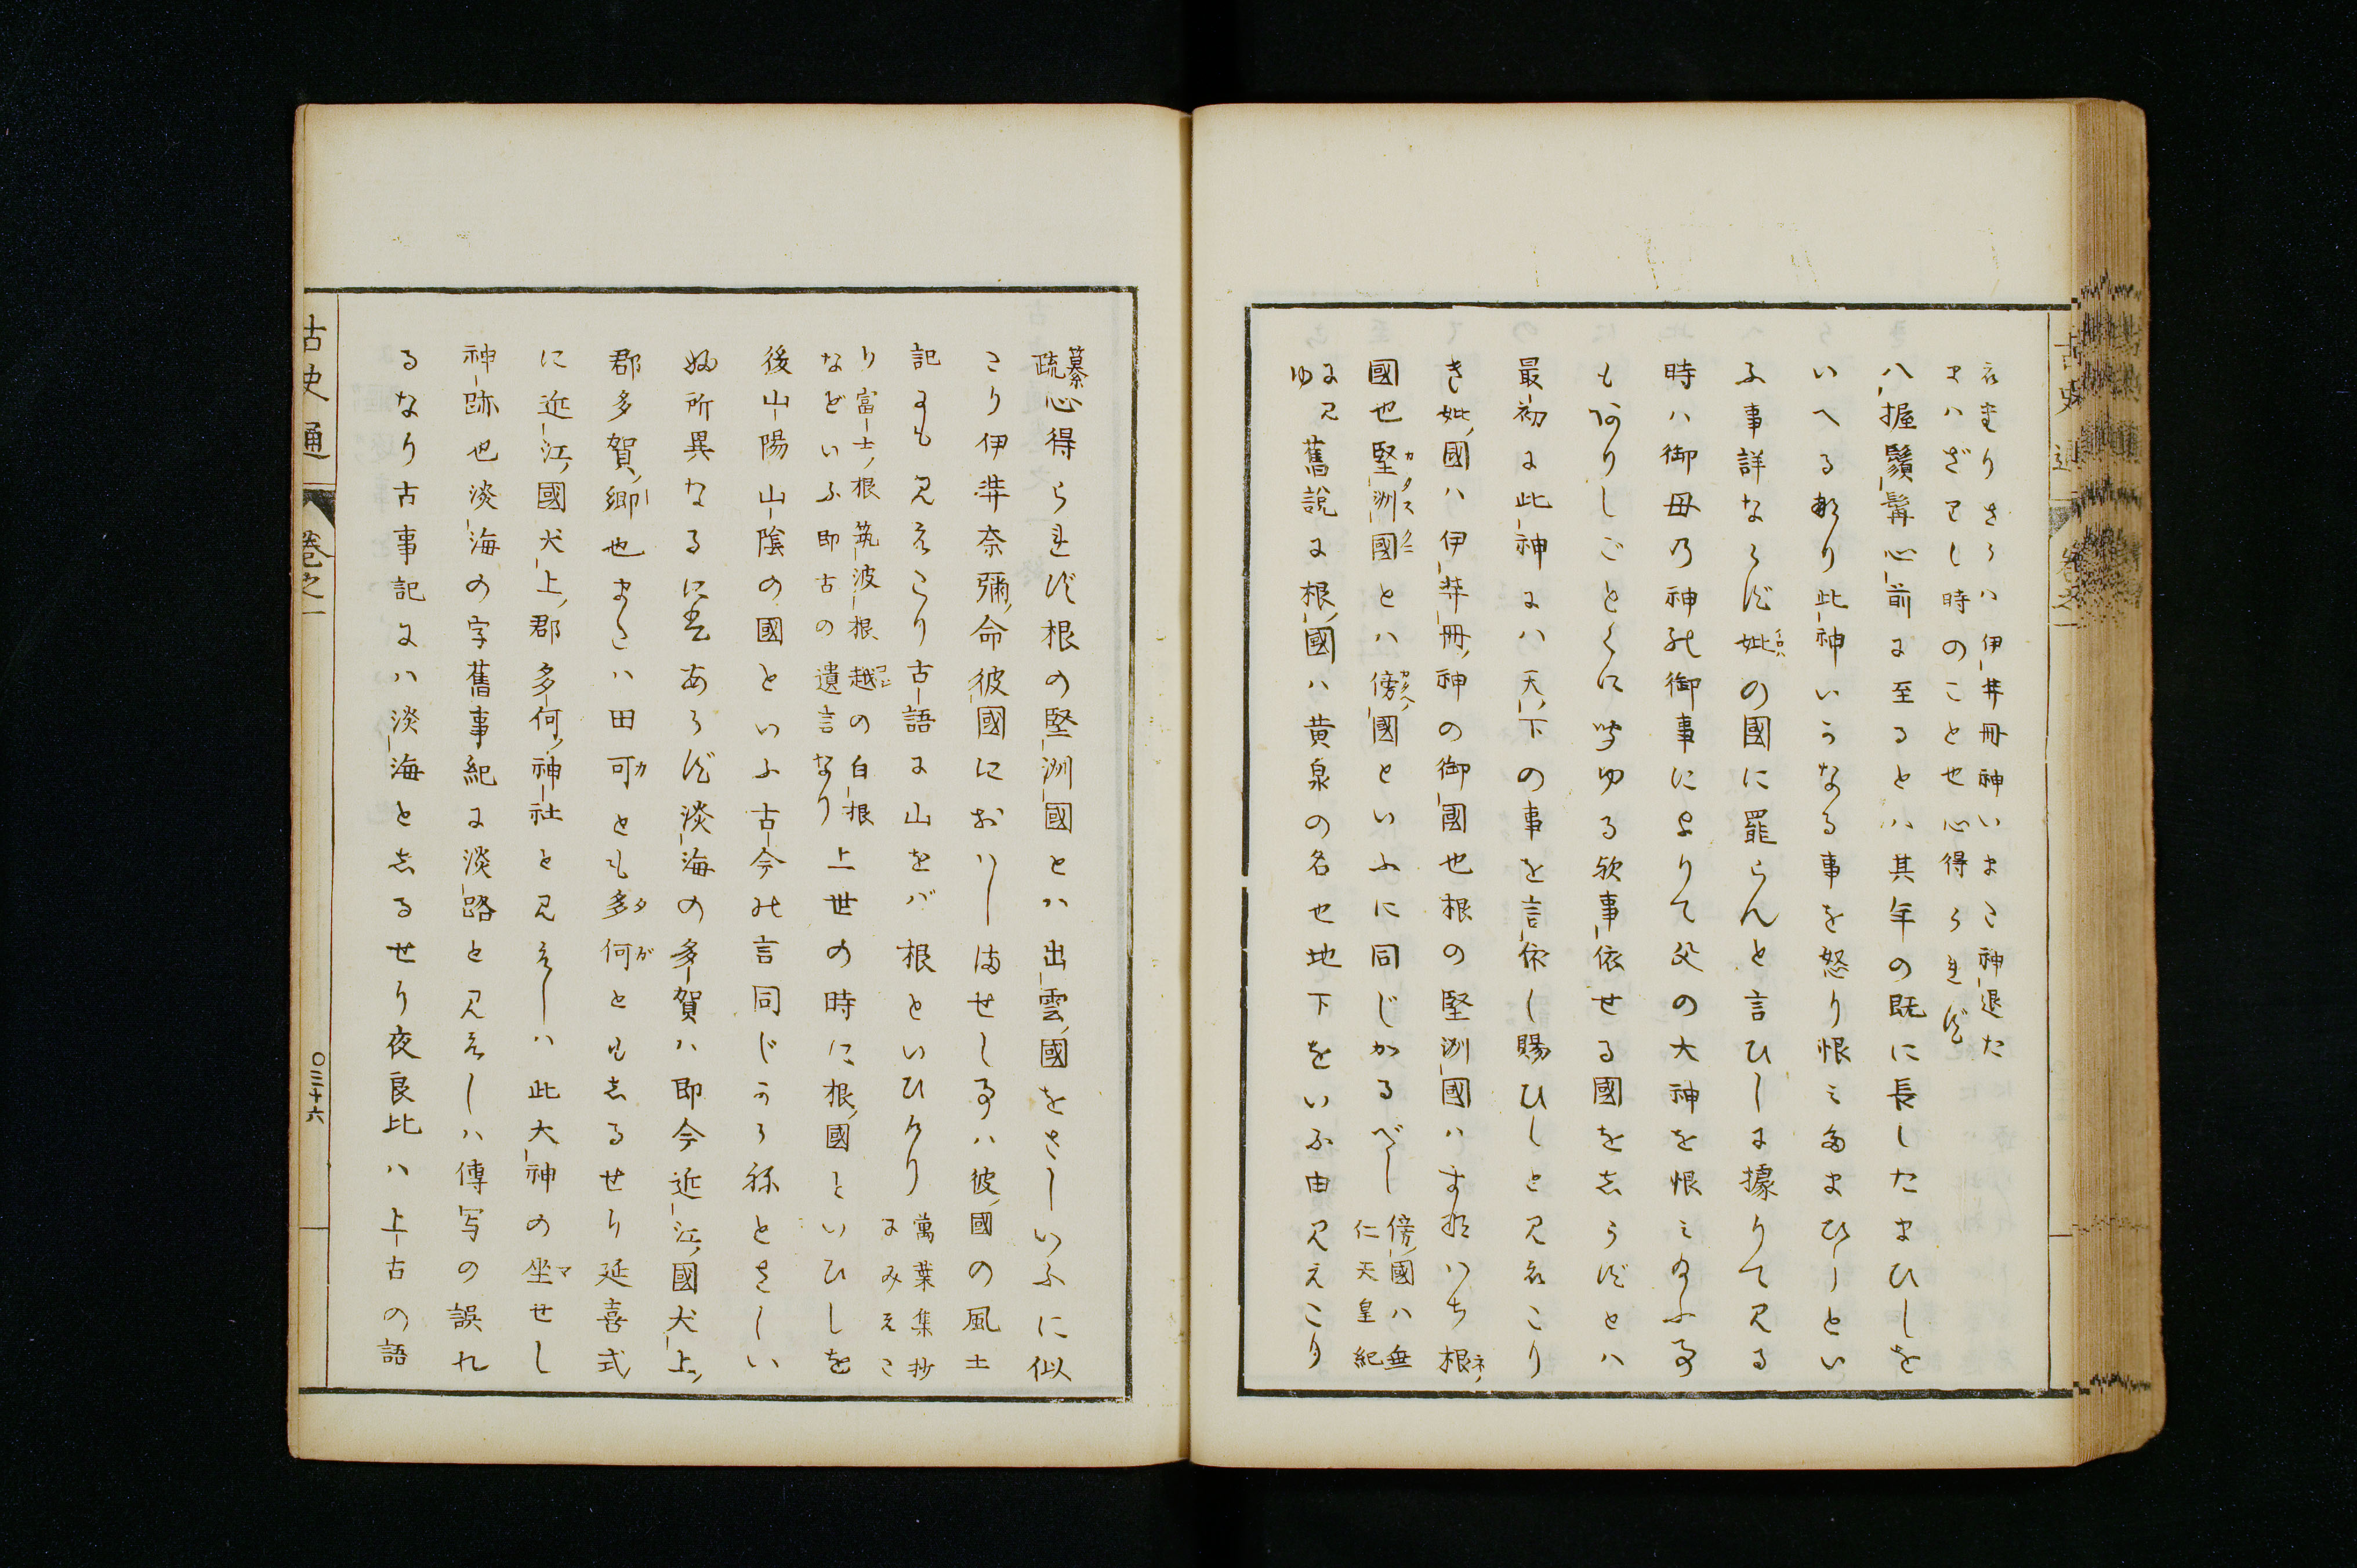 えまりさらハ伊弉冊神いまこ神退た
まハざりし時のことせ心得られず
八握鬚髯心前に至るとハ其年の既に長したまひしを
いへるなり此神いかなる事を怒り恨ミ給まひしとい
ふ事詳ならず妣の國に罷らんと言ひしに據りて見る
時ハ御母の神の御事によりて父の大神を恨ミ給ふ事
もありしごとくに聞ゆる歟事依せる國をしらずとハ
最初に此神にハ天下の事を言依し賜ひしと見えたり
き妣國ハ伊弉冊神の御國也根の堅洲國ハすなハち根
國也堅洲國とハ傍國といふに同じかるべし傍國ハ垂
仁天皇紀
に見ゆ舊說に根國ハ黄泉の名也地下をいふ由見えたり
古史通
卷之一
纂疏心得られず根の堅洲國とハ出雲國をさしいふに似
たり伊弉奈彌命彼國におハしませし事ハ彼國の風土
記にも見えたり古語に山をバ根といひけり萬葉集抄
にみえた
り富士根筑波根越の白根
などいふ即古の遺言なり上世の時に根國といひしを
後山陽山陰の國といふ古今の言同じからねとさしい
ぬ所異なるに差あらず淡海の多賀ハ即今近江國犬上
郡多賀郷也またハ田可とも多何ともしるせり延喜式
に近江國犬上郡多何神社と見えしハ此大神の坐せし
神跡也淡海の字舊事紀に淡路と見えしハ傳写の誤れ
るなり古事記にハ淡海としるせり夜良比ハ上古の語
古史通
卷之一
〇三十六